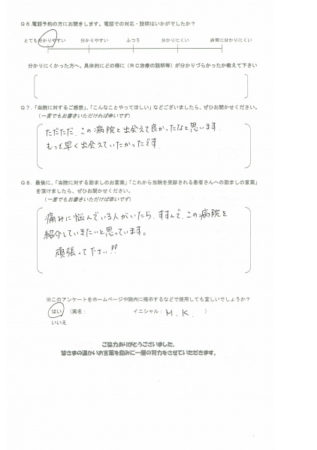 Q6.電話予約の方にお聞きします。電話での対応・説明はいかがでしたか?
とても分かりやすい 分かりやすい ふつう 分かりにくい 非常に分かりにくい
分かりにくかった方へ、具体的にどの様に(※○治療の説明等)が分かりづらかったか教えて下さい
Q7.「当院に対するご感想」、「こんなことやってほしい」などございましたら、ぜひお聞かせください。
(一言でもお書きいただければ幸いです)
ただただ、この病院と出会えて良かったなと思います。
もっと早く出会えていたかったです
Q8.最後に、「当院に対する励ましのお言葉」「これから当院を受診される患者さんへの励ましの言葉」
を頂けましたら、ぜひお聞かせください。
(一言でもお書きいただければ幸いです)
痛みに悩んでいる人がいたら、すすんで、この病院を
紹介していきたいと思っています。
頑張って下さい!!
※このアンケートをホームページや院内に掲示するなどで使用しても宜しいでしょうか?
はい (実名: イニシャル: M.K. )
いいえ
ご協力ありがとうございました。
皆さまの温かいお言葉を励みに一層の努力をさせていただきます。